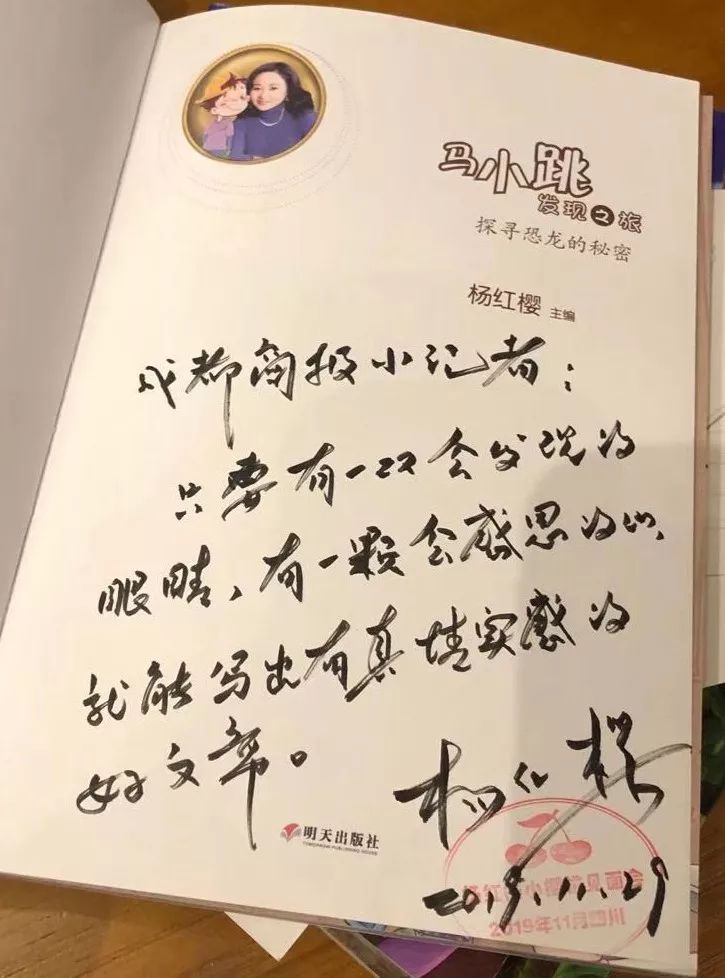 马小跳
发现之旅
探寻恐龙的秘密
杨红樱 主编
成都商报小记者：
只要有一双会发现的
眼睛，有一颗会感恩的心，
就能写出有真情实感的
好文章。
杨红樱
2019.11.29
明天出版社
TOMORROW PUBLISHING HOUSE
2019年11月四川